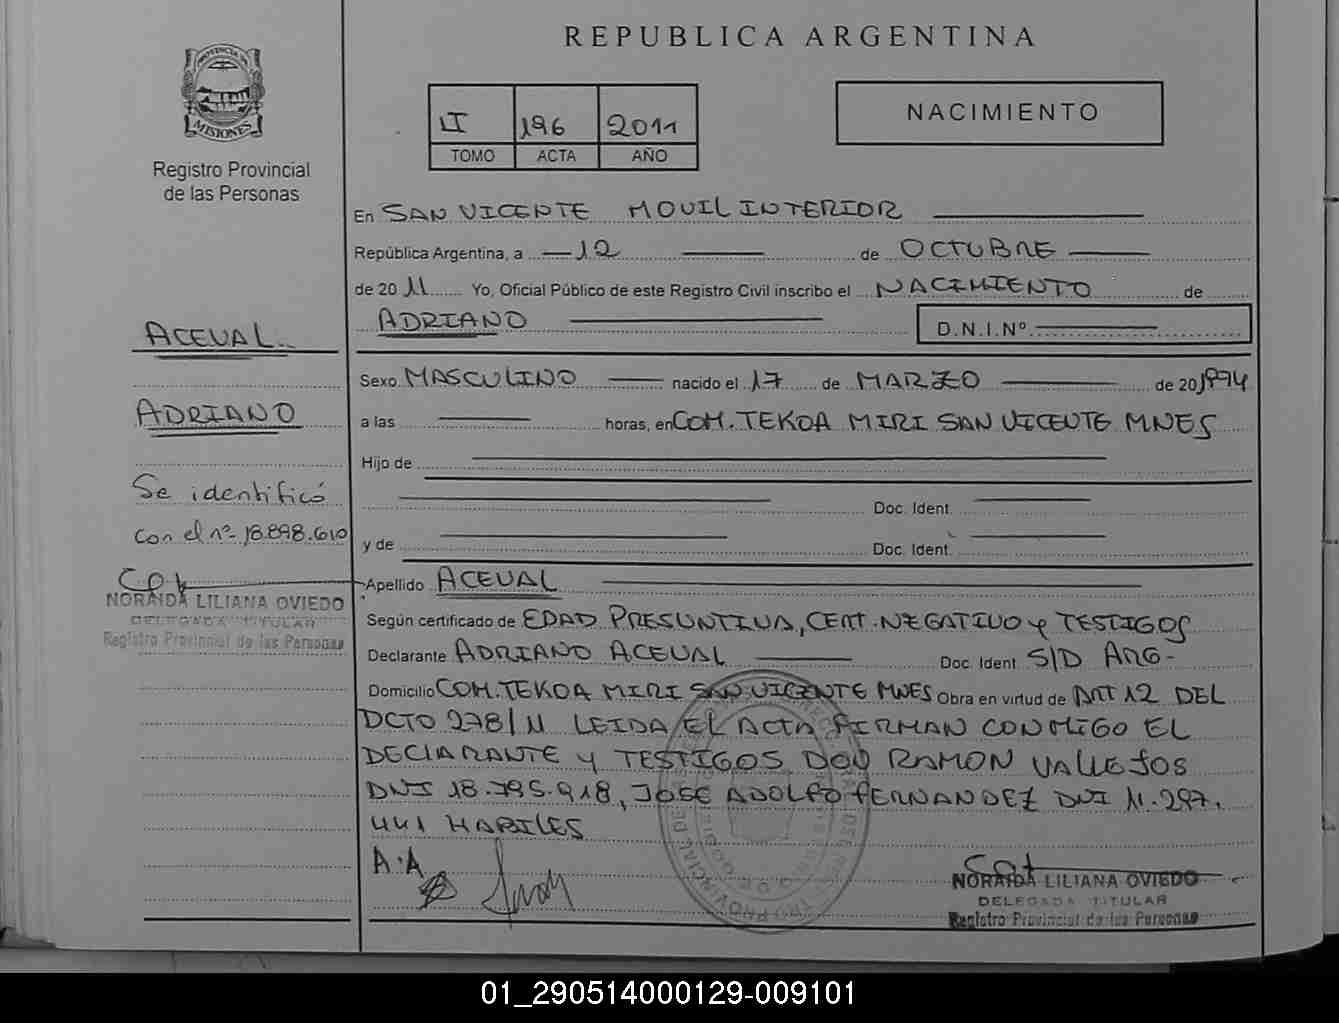 REPUBLICA ARGENTINA
PROVINCIA DE
MISIONES
Registro Provincial
de las Personas
LI 196 2011
TOMO ACTA AÑO
NACIMIENTO
En SAN VICENTE MOVIL INTERIOR
República Argentina, a 12 de OCTUBRE
de 2011 Yo, Oficial Público de este Registro Civil inscribo el NACIMIENTO de
ADRIANO D.N.I.Nº
ACEVAL
ADRIANO
Se identificó
con el nº 18.898.610
NORAIDA LILIANA OVIEDO
DELEGADA TITULAR
Registro Provincial de las Personas
Sexo MASCULINO nacido el 17 de MARZO de 201994
a las horas, en COM. TEKOA MIRI SAN VICENTE MNES
Hijo de
Doc. Ident.
y de Doc. Ident.
Apellido ACEVAL
Según certificado de EDAD PRESUNTIVA, CERT. NEGATIVO y TESTIGOS
Declarante ADRIANO ACEVAL Doc. Ident. S/D ARG-
Domicilio COM. TEKOA MIRI SAN VICENTE MNES Obra en virtud de ART 12 DEL
DCTO 278/11 LEIDA EL ACTA FIRMAN CONMIGO EL
DECLARANTE y TESTIGOS DON RAMON VALLEJOS
DNI 18.795.918, JOSE ADOLFO FERNANDEZ DNI 11.297.
441 HABILES
A.A
NORAIDA LILIANA OVIEDO
DELEGADA TITULAR
Registro Provincial de las Personas
01_290514000129-009101